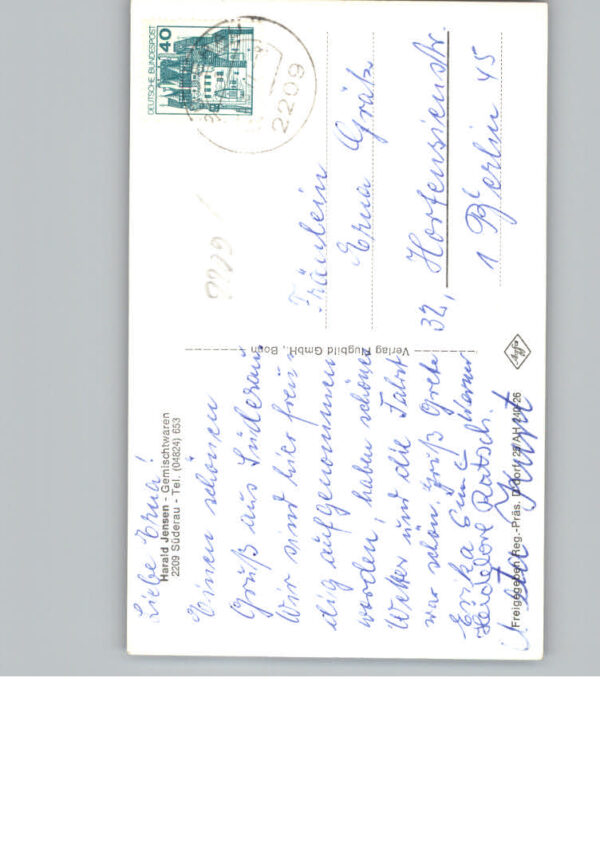 Harald Jensen - Gemischtwaren
2209 Süderau - Tel. (04824) 653
Liebe Erna!
Einen schönen
Gruß aus Süderau
Wir sind hier freu
dig aufgenommen
worden, haben schönes
Wetter und die Fahrt
war schön. Gruß Grete
Erika Werner
Heidelore Ratsch.
Freigegeben Reg.-Präs. D'dorf
Verlag Flugbild GmbH., Bonn
Agfa
DEUTSCHE BUNDESPOST
40
2209
Fräulein
Erna Grätz
32, Hortensienstr.
1 Berlin 45